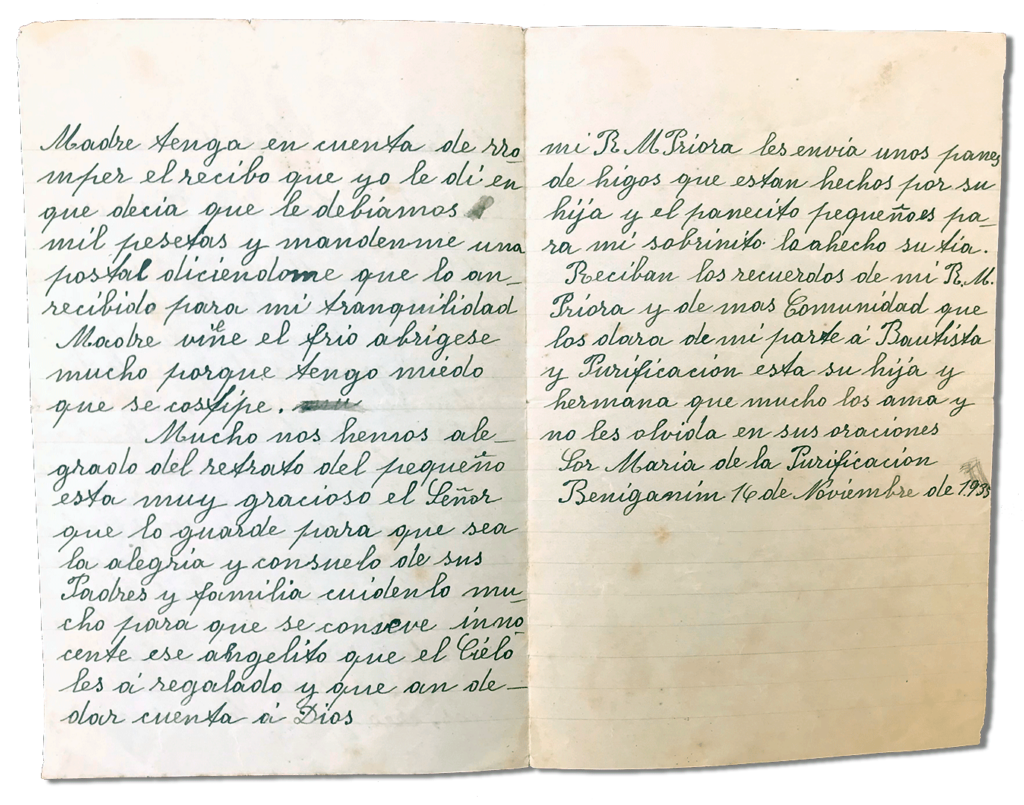 Madre tenga en cuenta de rro
mper el recibo que yo le di en
que decia que le debiamos
mil pesetas y mandenme una
postal diciéndome que lo an_
recibido para mi tranquilidad
Madre viñe el frio abrigese
mucho porque tengo miedo
que se costipe.
Mucho nos hemos ale_
grado del retrato del pequeño
esta muy gracioso el Señor
que lo guarde para que sea
la alegria y consuelo de sus
Padres y familia cuidenlo mu_
cho para que se conseve inno_
cente ese angelito que el Cielo
les á regalado y que an de_
dar cuenta á Dios
mi R M Priora les envia unos panes
de higos que estan hechos por su
hija y el panecito pequeño es pa_
ra mi sobrinito lo ahecho su tia.
Reciban los recuerdos de mi R. M.
Priora y de mas Comunidad que
los dara de mi parte á Bautista
y Purificación esta su hija y
hermana que mucho los ama y
no les olvida en sus oraciones
Sor Maria de la Purificación
Beniganim 16 de Noviembre de 1.935